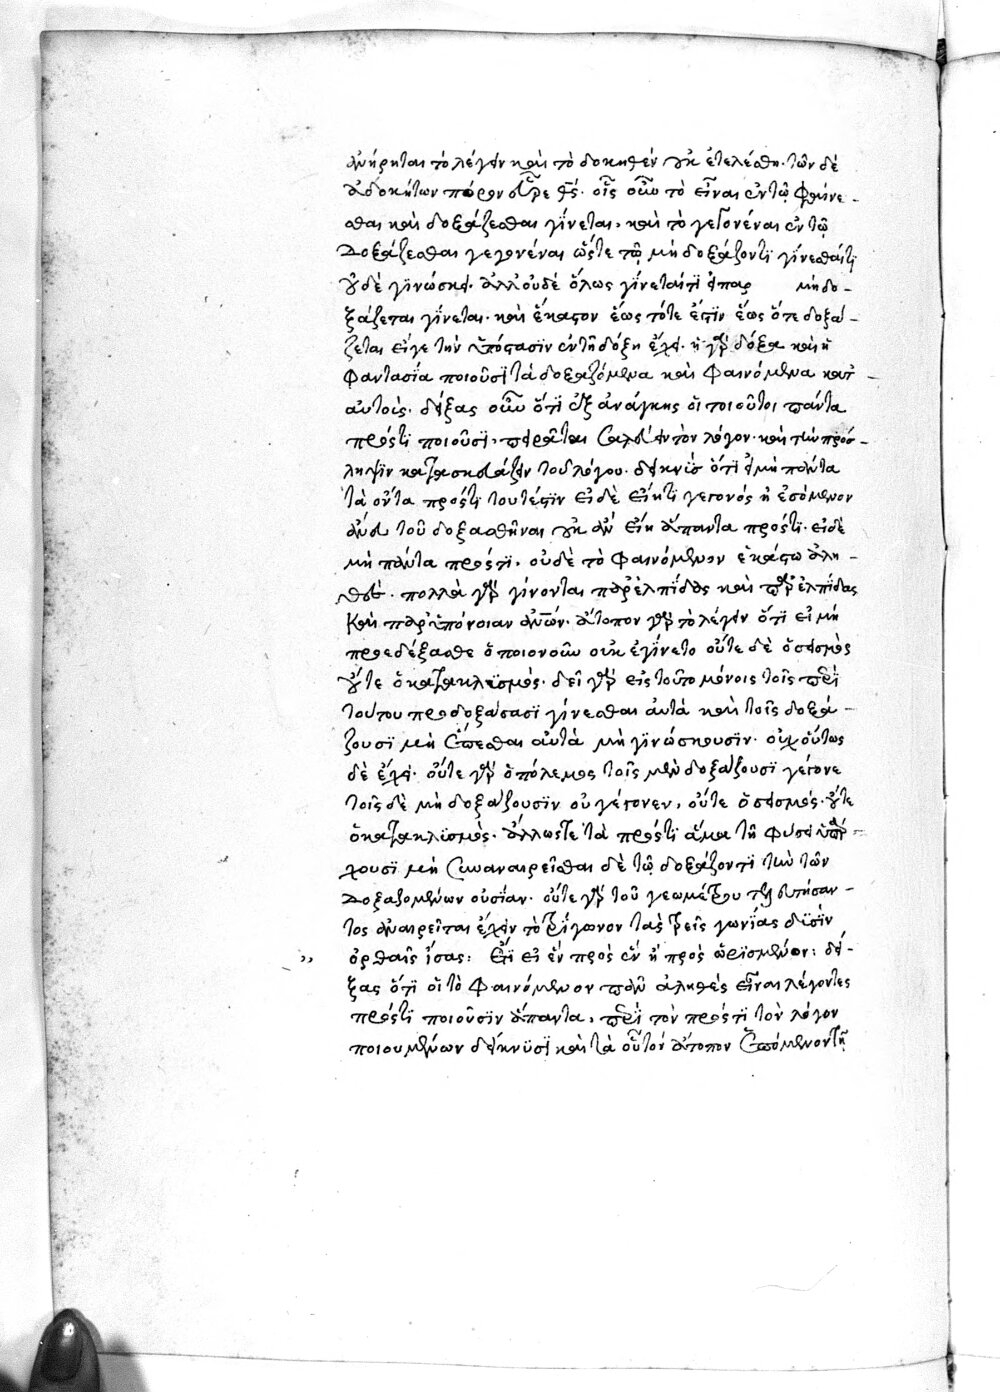 ἀνήρηται τὸ λέγειν καὶ τὸ δοκηθὲν οὐκ ἐτελέσθη· τῶν δὲ
ἀδοκήτων πόρον εὗρε θς· οἷς οὖν τὸ εἶναι ἐν τῶ φαίνε-
σθαι καὶ δοξάζεσθαι γίνεται, καὶ τὸ γεγονέναι ἐν τῶ
δοξάζεσθαι γεγονέναι ὥστε τῶ μὴ δοξάζοντι γίνεσθαί τι
οὐδὲ γινώσκει· ἀλλ οὐδὲ ὅλως γίνεταί τι εἰ παρ μὴ δο-
ξάζεται γίνεται· καὶ ἕκαστον ἕως τότε ἐστὶν ἕως ὅτε δοξά-
ζεται εἴγε τὴν ὑπόστασιν ἐν τῆ δόξη ἔχει· ἡ γὰρ δόξα καὶ ἡ
φαντασία ποιοῦσι τὰ δοξαζόμενα καὶ φαινόμενα κατ
αὐτοὺς· δείξας οὖν ὅτι ἐξ ἀνάγκης οἱ τοιοῦτοι πάντα
πρός τι ποιοῦσι, πειρᾶται τὸν λόγον· καὶ τὴν πρόσ-
ληψιν κατασκευάζειν τοῦ λόγου· δεικνὺς ὅτι εἰ μὴ πάντα
τὰ ὄντα πρός τι τουτέστιν εἰ δὲ εἴη τι γεγονός ἢ ἐσόμενον
ἄνευ τοῦ δοξασθῆναι οὐκ ἂν εἴη ἅπαντα πρός τι· εἰ δὲ
μὴ πάντα πρός τι, οὐδὲ τὸ φαινόμενον ἑκάστω ἀλη-
θές· πολλὰ γὰρ γίνονται παρ ἐλπίδας καὶ παρ ἐλπίδας
καὶ παρ ὑπόνοιαν ἀνων· ἄτοπον γὰρ τὸ λέγειν ὅτι εἰ μὴ
προεδέξασθε ὁποιονοῦν οὐκ ἐγίνετο οὔτε δὲ ὁ σεισμὸς
οὔτε ὁ κατακλισμός· δεῖ γὰρ εἰς τοῦτο μόνοις τοῖς περὶ
τούτου προδοξάσασι γίνεσθαι αὐτὰ καὶ τοῖς δοξά-
ζουσι μὴ ἕπεσθαι αὐτὰ μὴ γινώσκουσιν· οὐχ οὕτως
δὲ ἔχει· οὔτε γὰρ ὁ πόλεμος τοῖς μὲν δοξάζουσι γέγονε
τοῖς δὲ μὴ δοξάζουσιν οὐ γέγονεν, οὔτε ὁ σεισμός· οὔτε
ὁ κατακλισμός· ἄλλως τε τὰ πρός τι ἅμα τῆ φύσει ὑπάρ-
χουσι μὴ συναναιρεῖσθαι δὲ τῶ δοξάζοντι τὴν τῶν
δοξαζομένων οὐσίαν· οὔτε γὰρ τοῦ γεωμέτρου τοῦ ζητήσαν-
τος ἀναιρεῖται ἔχειν τὸ τρίγωνον τὰς τρεῖς γωνίας δυσὶν
ὀρθαῖς ἴσας: Ἔτι εἰ ἓν πρὸς ἓν ἢ πρὸς ὡρισμένον: δεί-
ξας ὅτι οἱ τὸ φαινόμενον πᾶν ἀληθὲς εἶναι λέγοντες
πρός τι ποιοῦσιν ἅπαντα, περὶ τὸν πρός τι τὸν λόγον
ποιουμένων δείκνυσι καὶ τὰ οὗτον ἄτοπον ἑπόμενον τῆ